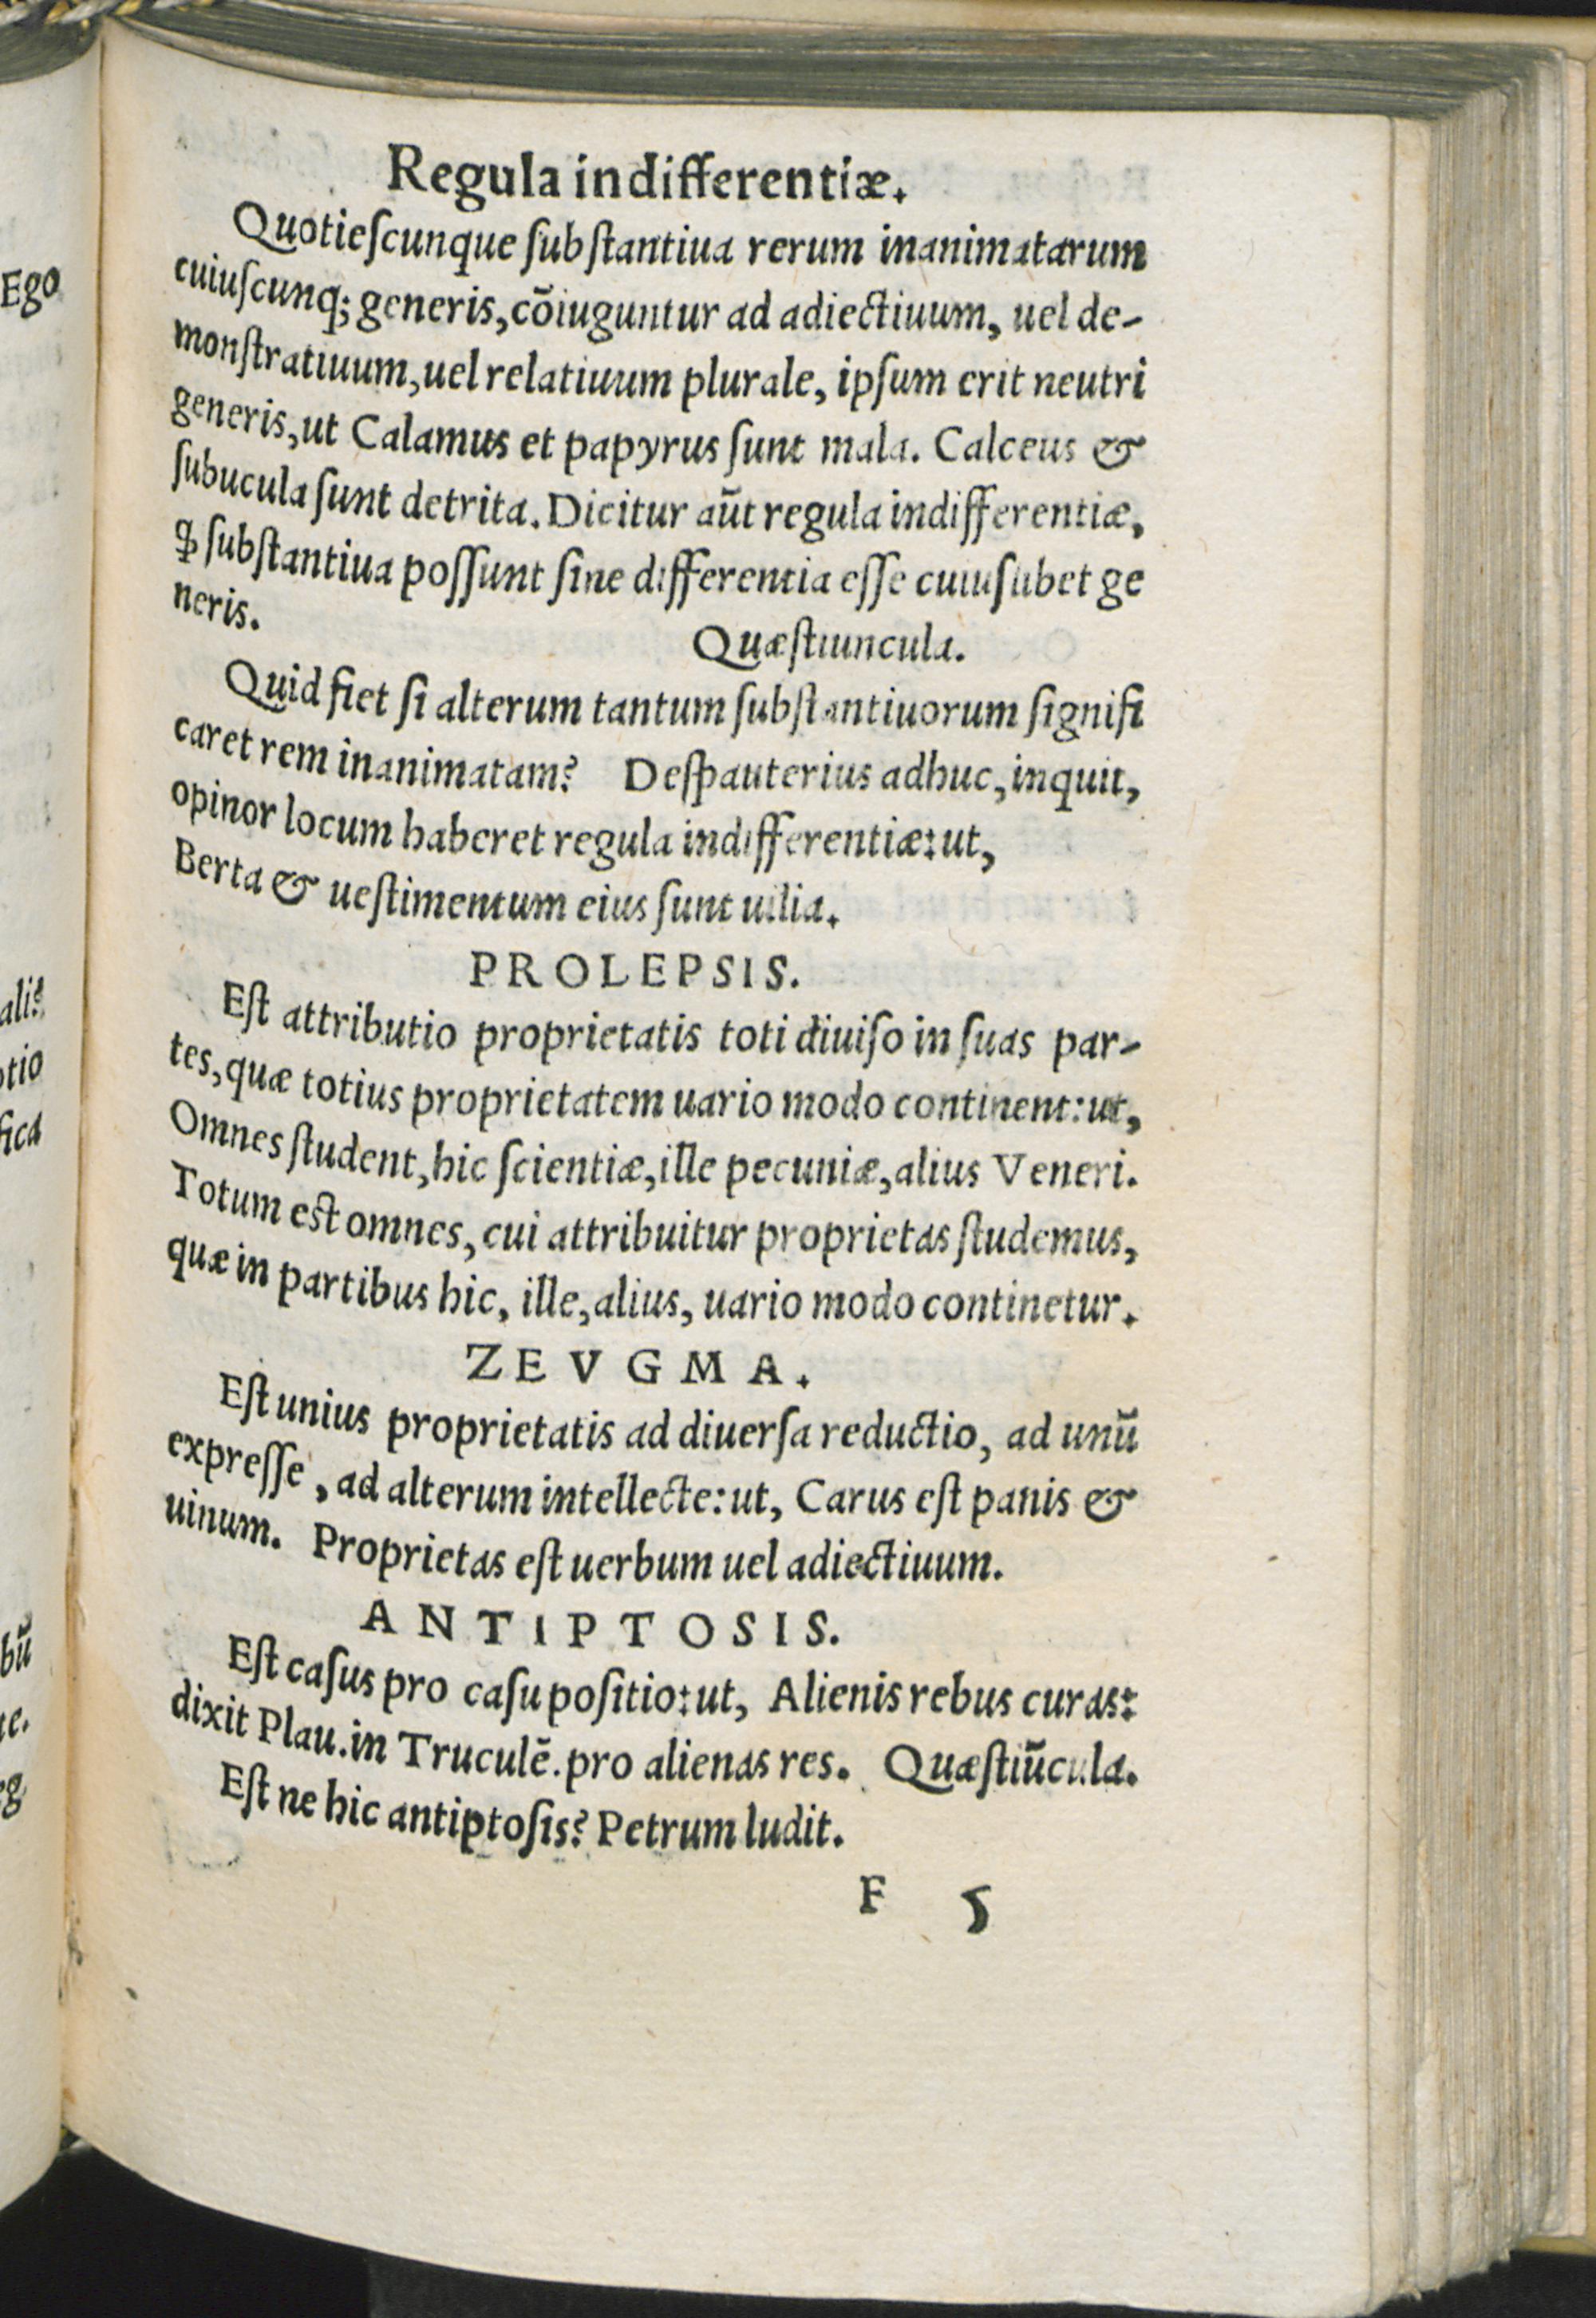 Regula indifferentiæ.
Quotieſcunque ſubſtantiua rerum inanimatarum
cuiuſcunq; generis, cōiuguntur ad adiectiuum, uel de-
monſtratiuum, uel relatiuum plurale, ipſum erit neutri
generis, ut Calamus et papyrus ſunt mala. Calceus &
ſubucula ſunt detrita. Dicitur aūt regula indifferentiæ,
ꝙ ſubſtantiua poſſunt ſine differentia eſſe cuiuſlibet ge
neris.
Quæſtiuncula.
Quid fiet ſi alterum tantum ſubſtantiuorum ſignifi
caret rem inanimatam? Deſpauterius adhuc, inquit,
opinor locum haberet regula indifferentiæ: ut,
Berta & ueſtimentum eius ſunt uilia.
PROLEPSIS.
Eſt attributio proprietatis toti diuiſo in ſuas par-
tes, quæ totius proprietatem uario modo continent: ut,
Omnes ſtudent, hic ſcientiæ, ille pecuniæ, alius Veneri.
Totum eſt omnes, cui attribuitur proprietas ſtudemus,
quæ in partibus hic, ille, alius, uario modo continetur.
ZEVGMA.
Eſt unius proprietatis ad diuerſa reductio, ad unū
expreſſe, ad alterum intellecte: ut, Carus eſt panis &
uinum. Proprietas eſt uerbum uel adiectiuum.
ANTIPTOSIS.
Eſt caſus pro caſu poſitio: ut, Alienis rebus curas:
dixit Plau. in Truculē. pro alienas res. Quæſtiūcula.
Eſt ne hic antiptoſis? Petrum ludit.
F 5
Ego
ali?
tio
fica
bū